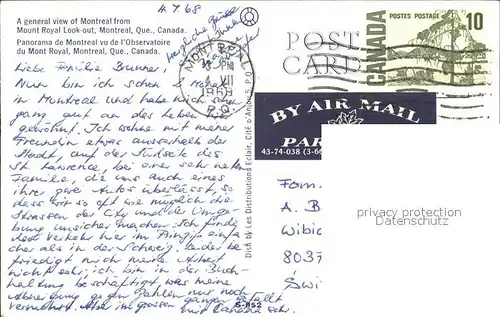 4.7.68
A general view of Montreal from
Mount Royal Look-out, Montreal, Que., Canada.
Panorama de Montréal vu de l'Observatoire
du Mont Royal, Montréal, Que., Canada.
herzliche Grüsse
Liebe Familie Brunner,
Nun bin ich schon
in Montreal und habe mich schon
ganz gut an das Leben hier
gewöhnt. Ich wohne mit meiner
Freundin etwas ausserhalb der
Stadt, auf der Südseite des
St. Lawrence, bei einer sehr netten
Familie, die uns auch eines
ihrer zwei Autos überlässt, so
dass wir so oft wie möglich die
Strassen der City und der Umge-
bung unsicher machen. Ich finde
den Verkehr hier im Prinzip einfa-
cher als in der Schweiz. Leider be-
friedigt mich meine Arbeit
nicht sehr, ich bin in der Buch-
haltung beschäftigt, was meine
Abneigung gegen Zahlen nur noch
vermehrt. Aber im grossen ganzen gefällt
mir Canada sehr.
MONTREAL
PM
VII
1968
P.Q.
POST
CARD
CANADA
POSTES POSTAGE
10
BY AIR MAIL
PAR
43-74-038 (3-66
Dist. by Les Distributions Eclair, Cité d'Anjou 5, P.Q.
S-852
Fam.
A. B
Wibic
8037
Swi
privacy protection
Datenschutz